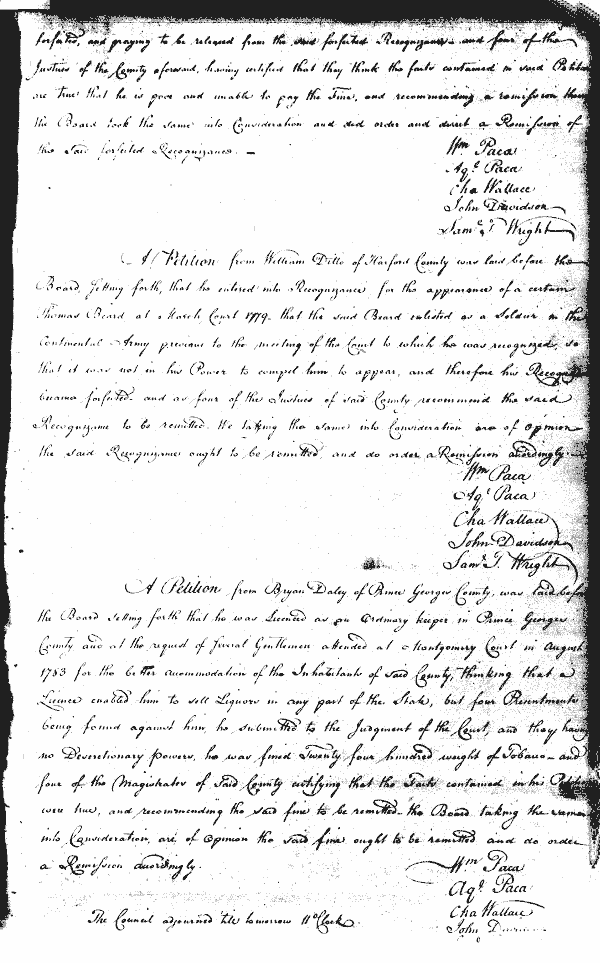 forfeited, and praying to be released from the said forfeited Recognizance and four of the
Justices of the County aforesaid, having certified that they think the facts contained in said Petition
are true that he is poor and unable to pay the Fine, and recommending a remission thereof
the Board took the same into Consideration and did order and direct a Remission of
the said forfeited Recognizance. —
Wm Paca
Aqa Paca
Cha Wallace
John Davidson
Saml T Wright
A Petition from William Ditto of Harford County was laid before the
Board, setting forth, that he entered into Recognizance for the appearance of a certain
Thomas Beard at March Court 1779. that the said Beard enlisted as a Soldier in the
Continental Army previous to the meeting of the Court to which he was recognized, so
that it was not in his Power to compel him to appear, and therefore his Recognizance
became forfeited. and as four of the Justices of said County recommend the said
Recognizance to be remitted. We taking the same into Consideration are of opinion
the said Recognizance ought to be remitted and do order a Remission accordingly. —
Wm Paca
Aqa Paca
Cha Wallace
John Davidson
Saml T. Wright
A Petition from Bryan Daley of Prince Georges County, was laid before
the Board setting forth that he was Licenced as an Ordinary keeper in Prince Georges
County and at the request of several Gentlemen attended at Montgomery Court in August
1783 for the better accommodation of the Inhabitants of said County, thinking that a
Licence enabled him to sell Liquors in any part of the State, but four Presentments
being found against him, he submitted to the Judgment of the Court, and they having
no Descretionary Powers, he was fined Twenty four hundred weight of Tobacco — and
four of the Magistrates of said County certifying that the Facts contained in his Petition
were true, and recommending the said fine to be remitted. the Board taking the same
into Consideration, are of opinion the said fine ought to be remitted and do order
a Remission accordingly.
Wm Paca
Aqa Paca
Cha Wallace
John Davidson
The Council adjourned till tomorrow 11 oClock.